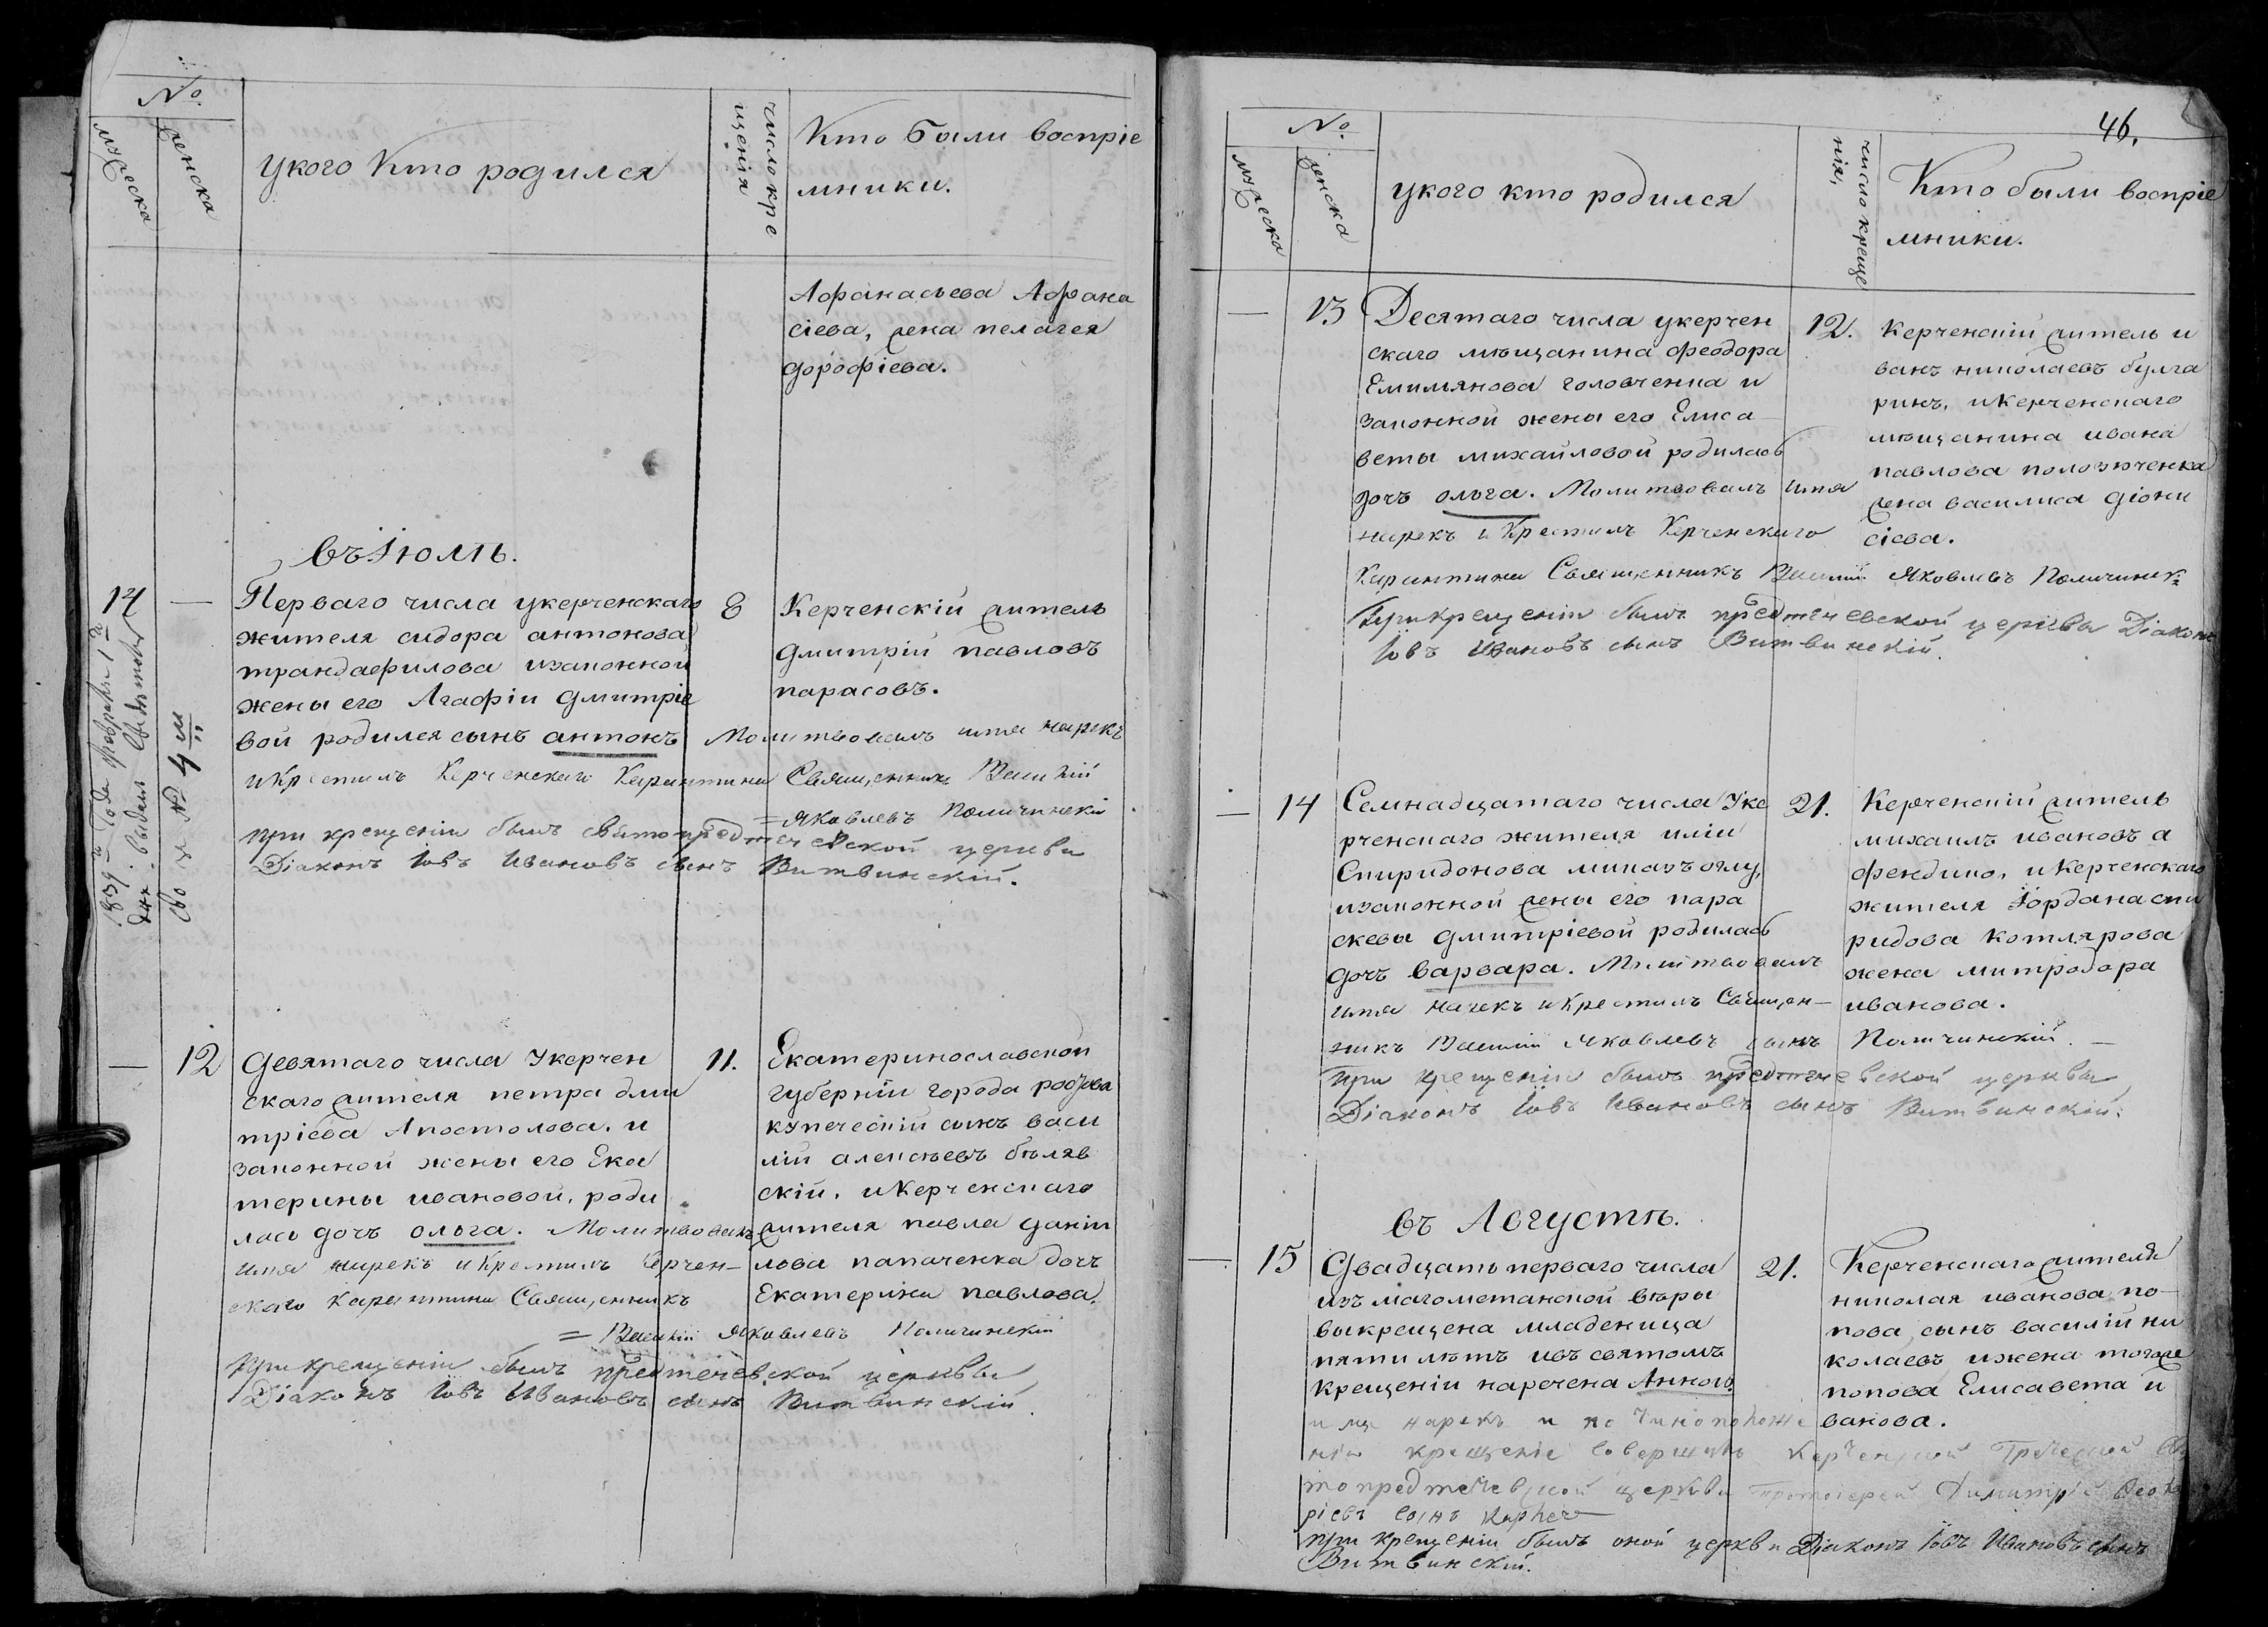 №
мужеска
женска
укого кто родился
число кре
щенія
Кто были воспріе
мники.
Афанасьева Афана
сіева, жена пелагея
дорофіева.
въ Іюлѣ.
14
—
Перваго числа укерченскаго
жителя сидора антонова
трандафилова изаконной
жены его Агафіи дмитріе
вой родился сынъ антонъ
8
Керченскій житель
дмитрій павловъ
парасовъ.
Молитвовалъ имя нарекъ
и крестилъ Керченскаго Карантина Священникъ Василій
= Яковлевъ Поличинскій
при крещеніи былъ свято предтечевской церкви
Діаконъ Іовъ Ивановъ сынъ Витвинскій.
1839 года февраля 1
дня выдано свидѣтель
ство за № 4 м
—
12
девятаго числа Укерчен
скаго жителя петра дми
тріева Апостолова. и
законной жены его Ека
терины ивановой, роди
лась дочь ольга. Молитвовалъ
имя нарекъ и крестилъ Керчен-
скаго Карантина Священникъ
= Василій Яковлевъ Поличинскій
при крещеніи былъ предтечевской церквы
Діаконъ Іовъ Ивановъ сынъ Витвинскій.
11.
Екатеринославской
губерніи города
купеческій сынъ васи
лій алексѣевъ бѣляв
скій, и Керченскаго
жителя павла даніи
лова папаченка дочь
Екатерина павлова.
46.
№
мужеска
женска
укого кто родился
число креще
нія,
Кто были воспріе
мники.
—
13
Десятаго числа укерчен
скаго мѣщанина феодора
Емимянова головченка и
законной жены его Елиса
веты михайловой родилась
дочь ольга. Молитвовалъ имя
нарекъ и Крестилъ Керченскаго
Карантина Священникъ Василій Яковлевъ Поличинск.
При крещеніи былъ предтечевской церквы Діаконъ
Іовъ Ивановъ сынъ Витвинскій.
12.
Керченскій житель и
ванъ николаевъ булга
ринъ, и Керченскаго
мѣщанина ивана
павлова
жена василиса діони
сіева.
—
14
Семнадцатаго числа Уке
рченскаго жителя иліи
Спиридонова
изаконной жены его пара
скевы дмитріевой родилась
дочь варвара. Молитвовалъ
имя нарекъ и крестилъ Священ—
никъ Василій Яковлевъ сынъ Поличинскій. —
при крещеніи былъ предтечевской церквы
Діаконъ Іовъ Ивановъ сынъ Витвинскій.
21.
Керченскій житель
михаилъ ивановъ а
фендико, и Керченскаго
жителя Іордана спи
ридова котлярова
жена митродора
иванова.
въ Августѣ.
—
15
Двадцать перваго числа
изъ магометанской вѣры
выкрещена младеница
пяти лѣтъ ивъ святомъ
крещеніи наречена Анною.
имя нарекъ и по чиноположе
нію крещеніе совершилъ Керченской Греческой Свя
топредтечевской церкви протоіерей Димитрій
ріевъ сынъ
21.
Керченскаго жителя
николая иванова по-
пова сынъ василій ни
колаевъ ижена тогоже
попова Елисавета и
ванова.
при крещеніи былъ оной церкви Діаконъ Іовъ Ивановъ сынъ
Витвинскій.